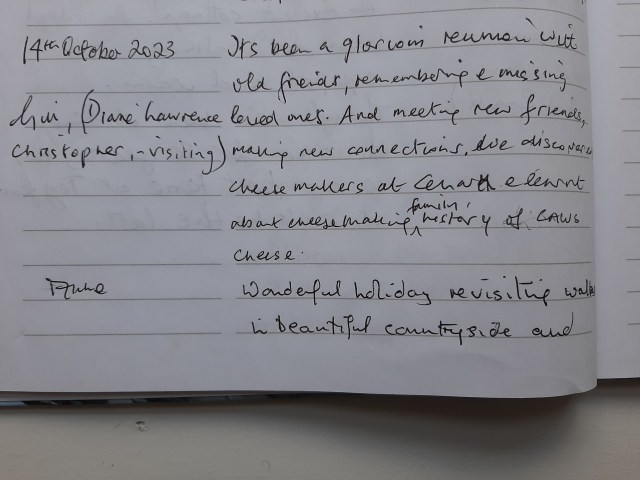 14th October 2023 It's been a glorious reunion with
old friends, remembering & missing
(Diane Lawrence loved ones. And meeting new friends,
Christopher, - visiting) making new connections. We discovered
cheese makers at Cenarth & learnt
about cheesemaking, family history of CAWS
cheese.
Wonderful holiday revisiting
in beautiful countryside and